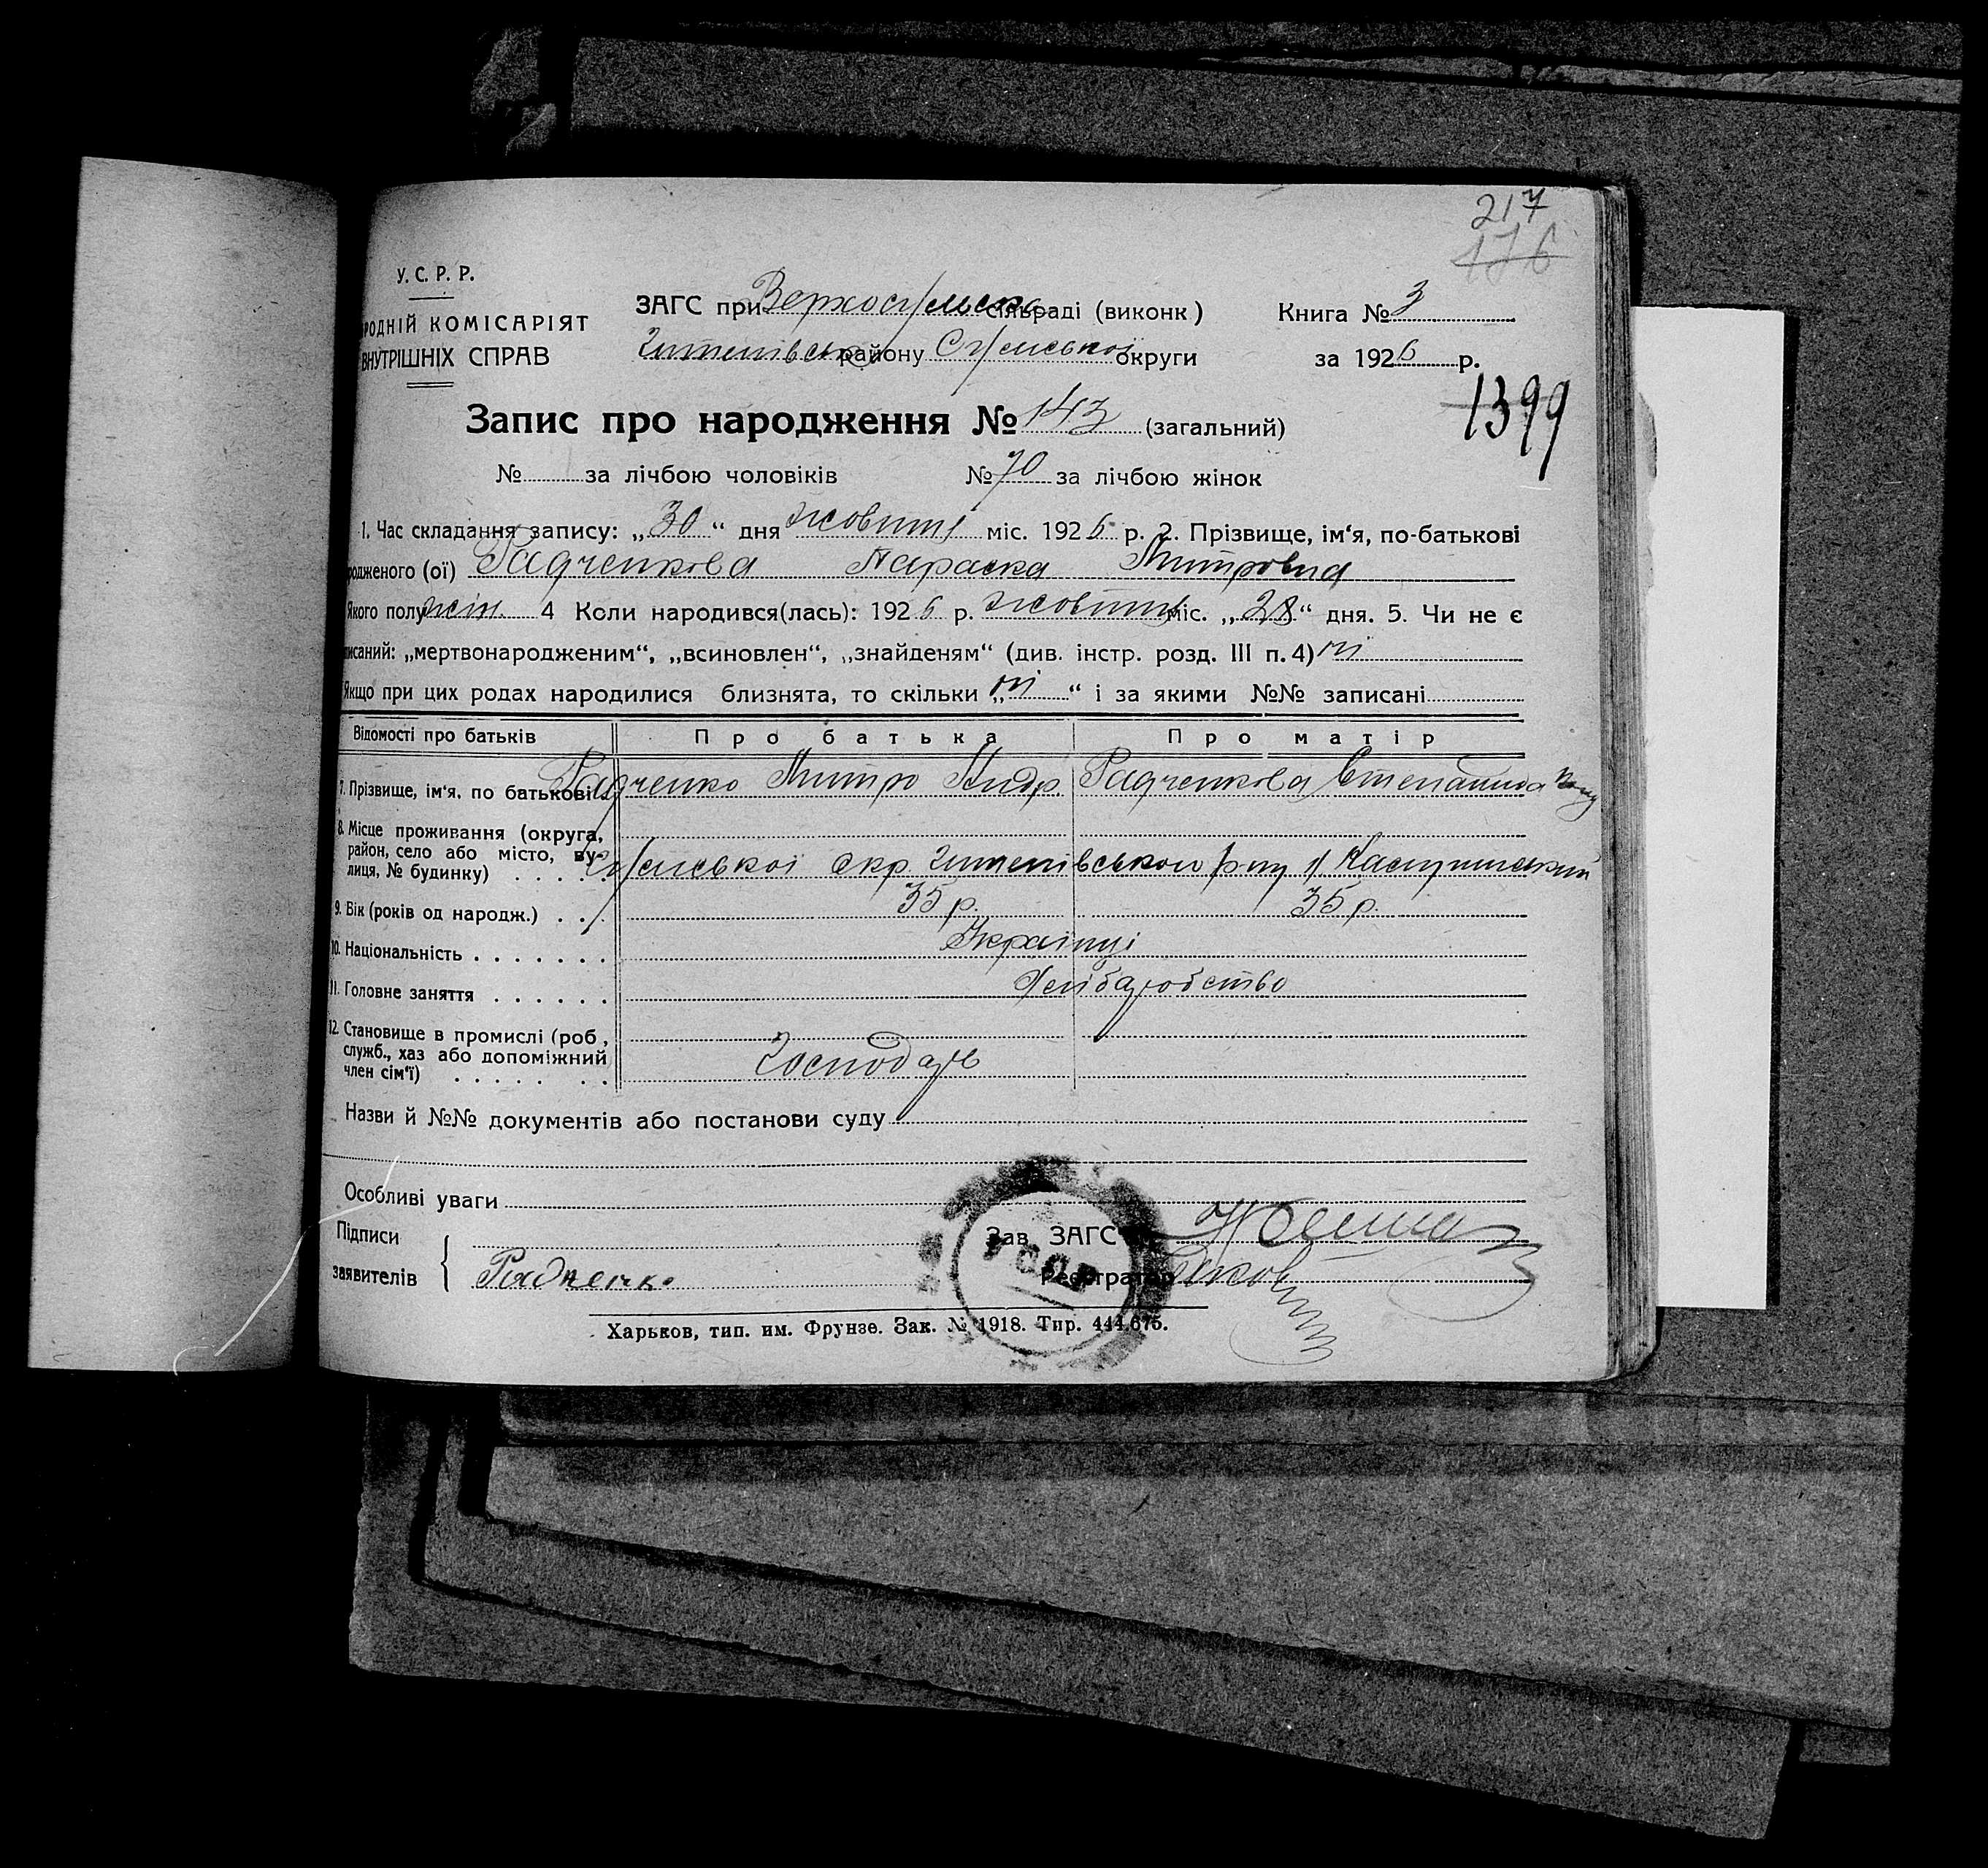 217
176
У. С. Р. Р.
РОДНІЙ КОМІСАРІЯТ
ВНУТРІШНІХ СПРАВ
ЗАГС при Верхосульск сільраді (виконк)
Книга № 3
району Сумської округи
за 1926 р.
1399
Запис про народження № 143 (загальний)
№ за лічбою чоловіків № 70 за лічбою жінок
1. Час складання запису: „30“ дня жовтня міс. 1926 р. 2. Прізвище, ім‘я, по-батькові
родженого (ої) Радченкова Параска Митровна
Якого полу жін. 4 Коли народився(лась): 1926 р. жовтня міс. „28“ дня. 5. Чи не є
писаний: „мертвонародженим“, „всиновлен“, „знайденям“ (див. інстр. розд. III п. 4) ні
Якщо при цих родах народилися близнята, то скільки „ні“ і за якими №№ записані
Відомості про батьків Про батька Про матір
7. Прізвище, ім‘я, по батькові Радченко Митро Андр. Радченкова Степанида
8. Місце проживання (округа,
район, село або місто, ву-
лиця, № будинку) Сумської окр. р-ну
9. Вік (років од народж.) 35 р. 35 р.
10. Національність Українці
11. Головне заняття Хліборобство
12. Становище в промислі (роб,
служб., хаз або допоміжний
член сім‘ї) Господарь
Назви й №№ документів або постанови суду
Особливі уваги
Підписи
заявителів Радченко
Зав. ЗАГС
Реєстратор
УСРР
Харьков, тип. им. Фрунзе. Зак. № 1918. Тир. 444.675.